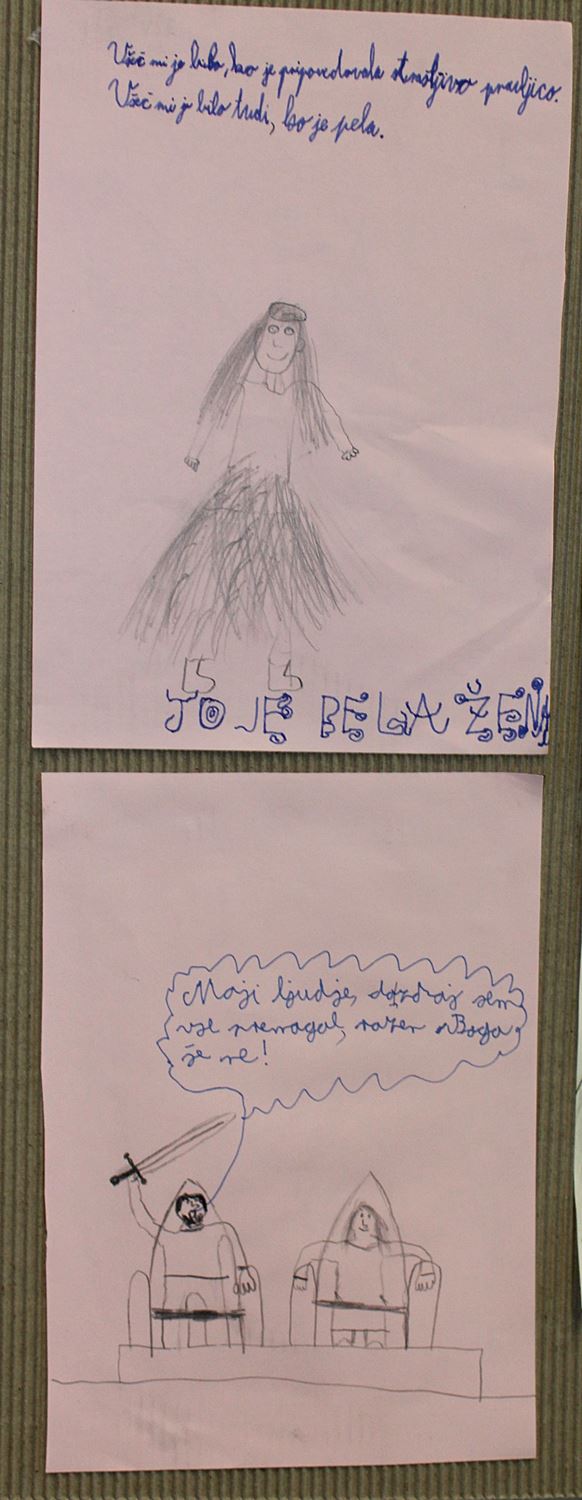 Všeč mi je bilo, ko je pripovedovala strašljivo pravljico.
Všeč mi je bilo tudi, ko je pela.
TO JE BELA ŽENA
Moji ljudje, dozdaj sem
vse premagal, razen Boga
še ne!